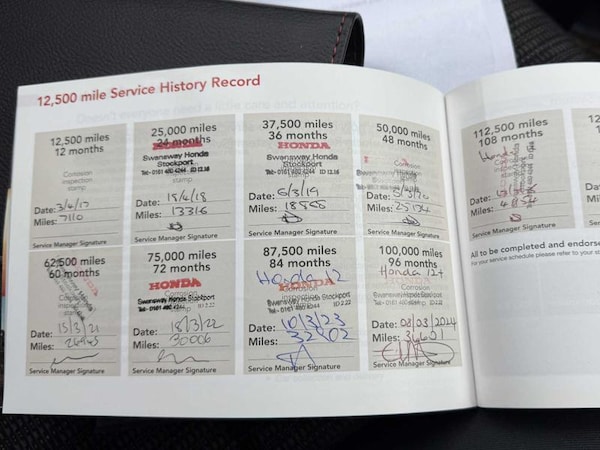 12,500 mile Service History Record
12,500 miles
12 months
Corrosion
inspection
stamp
Date: 3/4/17
Miles: 7110
Service Manager Signature
25,000 miles
24 months
HONDA
Swansway Honda
Stockport
Tel:- 0161 480 4244 ID 12.16
Date: 15/4/18
Miles: 13316
Service Manager Signature
37,500 miles
36 months
HONDA
Swansway Honda
Stockport
Tel:- 0161 480 4244 ID 12.16
Date: 6/3/19
Miles:
Service Manager Signature
50,000 miles
48 months
Date:
Miles:
Service Manager Signature
62,500 miles
60 months
Date: 15/3/21
Miles:
Service Manager Signature
75,000 miles
72 months
HONDA
Corrosion
Swansway Honda Stockport
Tel:- 0161 480 4244 ID 2.22
stamp
Date: 18/3/22
Miles: 30006
Service Manager Signature
87,500 miles
84 months
Honda 12
HONDA
Swansway Honda Stockport
Tel:- 0161 480 4244 ID 2.22
Date: 10/3/23
Miles: 32702
Service Manager Signature
100,000 miles
96 months
Honda 12+
HONDA
Corrosion
Swansway Honda Stockport
Tel:- 0161 480 4244 ID 2.22
Date: 08/03/2024
Miles: 36601
Service Manager Signature
112,500 miles
108 months
Date:
Miles:
Service Manager Signature
12
All to be completed and endorse
For your service schedule please refer to your